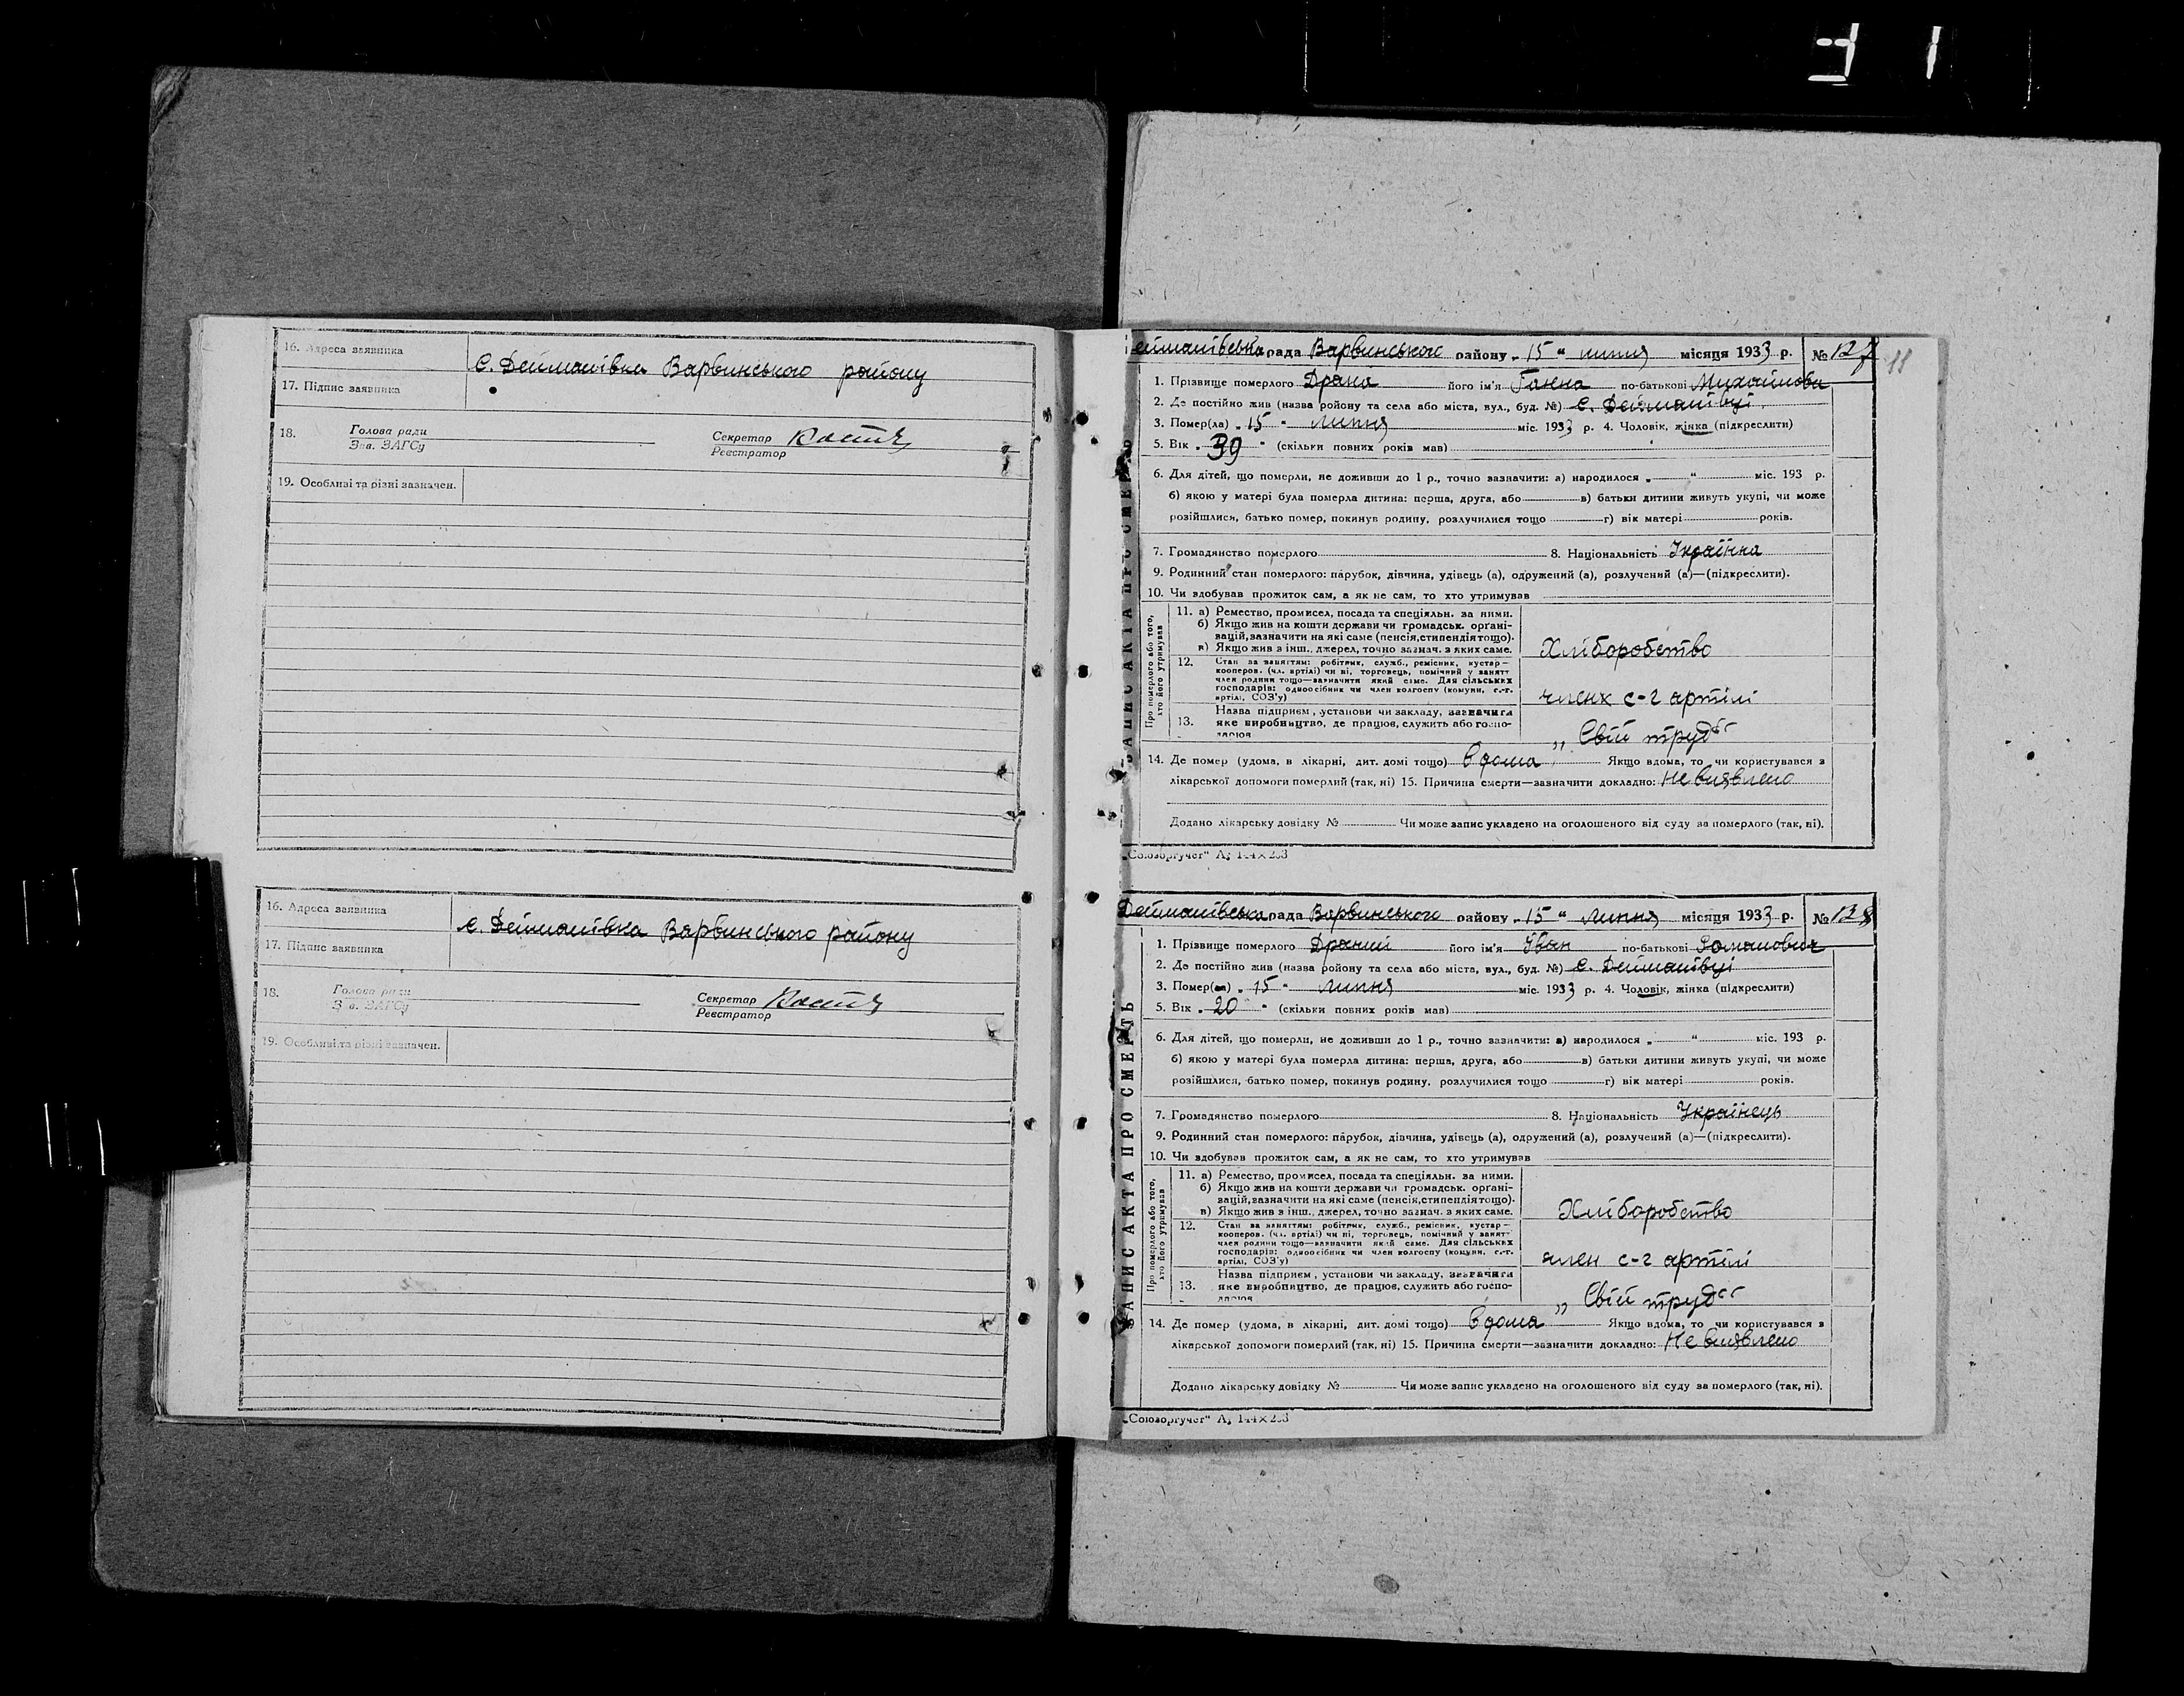 16. Адреса заявника
с. Дейманівка Варвинського району
17. Підпис заявника
18. Голова ради
Зав. ЗАГСу
Секретар
Реєстратор
19. Особливі та різні зазначен.
16. Адреса заявника
с. Дейманівка Варвинського району
17. Підпис заявника
18. Голова ради
Зав. ЗАГСу
Секретар
Реєстратор
19. Особливі та різні зазначен.
ЗАПИС АКТА ПРО СМЕРТЬ
ейманівська рада Варвинського району „15“ липня місяця 1933 р. № 127
11
1. Прізвище померлого Драна його ім'я Ганна по-батькові Михайлова
2. Де постійно жив (назва району та села або міста, вул., буд. №) с. Дейманівці
3. Помер(ла) „15“ липня міс. 1933 р. 4. Чоловік, жінка (підкреслити)
5. Вік „39“ (скільки повних років мав)
6. Для дітей, що померли, не доживши до 1 р., точно зазначити: а) народилося „ “ міс. 193 р.
б) якою у матері була померла дитина: перша, друга, або в) батьки дитини живуть укупі, чи може
розійшлися, батько помер, покинув родину, розлучилися тощо г) вік матері років.
7. Громадянство померлого 8. Національність Українка
9. Родинний стан померлого: парубок, дівчина, удівець (а), одружений (а), розлучений (а)—(підкреслити).
10. Чи здобував прожиток сам, а як не сам, то хто утримував
Про померлого або того, хто його утримував
11. а) Ремество, промисел, посада та спеціяльн. за ними.
б) Якщо жив на кошти держави чи громадськ. орґані-
зацій, зазначити на які саме (пенсія, стипендія тощо).
в) Якщо жив з інш., джерел, точно зазнач. з яких саме.
Хліборобство
12. Стан за заняттям: робітник, служб., ремісник, кустар—
кооперов. (чл. артілі) чи ні, торговець, помічний у занятт
член родини тощо—зазначити який саме. Для сільських
господарів: одноосібник чи член колгоспу (комуни, с.-г.
артілі, СОЗ'у)
членк с-г артілі
13. Назва підприєм., установи чи закладу, зазначити
яке виробництво, де працює, служить або госпо-
дарює
„Свій труд“
14. Де помер (удома, в лікарні, дит. домі тощо) вдома Якщо вдома, то чи користувався з
лікарської допомоги померлий (так, ні) 15. Причина смерти—зазначити докладно: Не виявлено
Додано лікарську довідку № Чи може запис укладено на оголошеного від суду за померлого (так, ні).
„Союзоргучет“
ЗАПИС АКТА ПРО СМЕРТЬ
Дейманівська рада Варвинського району „15“ Липня місяця 1933 р. № 128
1. Прізвище померлого Драний його ім'я Іван по-батькові Романович
2. Де постійно жив (назва району та села або міста, вул., буд. №) с. Дейманівці
3. Помер(ла) „15“ липня міс. 1933 р. 4. Чоловік, жінка (підкреслити)
5. Вік „20“ (скільки повних років мав)
6. Для дітей, що померли, не доживши до 1 р., точно зазначити: а) народилося „ “ міс. 193 р.
б) якою у матері була померла дитина: перша, друга, або в) батьки дитини живуть укупі, чи може
розійшлися, батько помер, покинув родину, розлучилися тощо г) вік матері років.
7. Громадянство померлого 8. Національність Українець
9. Родинний стан померлого: парубок, дівчина, удівець (а), одружений (а), розлучений (а)—(підкреслити).
10. Чи здобував прожиток сам, а як не сам, то хто утримував
Про померлого або того, хто його утримував
11. а) Ремество, промисел, посада та спеціяльн. за ними.
б) Якщо жив на кошти держави чи громадськ. орґані-
зацій, зазначити на які саме (пенсія, стипендія тощо).
в) Якщо жив з інш., джерел, точно зазнач. з яких саме.
Хліборобство
12. Стан за заняттям: робітник, служб., ремісник, кустар—
кооперов. (чл. артілі) чи ні, торговець, помічний у занятт
член родини тощо—зазначити який саме. Для сільських
господарів: одноосібник чи член колгоспу (комуни, с.-г.
артілі, СОЗ'у)
член с-г артілі
13. Назва підприєм., установи чи закладу, зазначити
яке виробництво, де працює, служить або госпо-
дарює
„Свій труд“
14. Де помер (удома, в лікарні, дит. домі тощо) вдома Якщо вдома, то чи користувався з
лікарської допомоги померлий (так, ні) 15. Причина смерти—зазначити докладно: Не виявлено
Додано лікарську довідку № Чи може запис укладено на оголошеного від суду за померлого (так, ні).
„Союзоргучет“